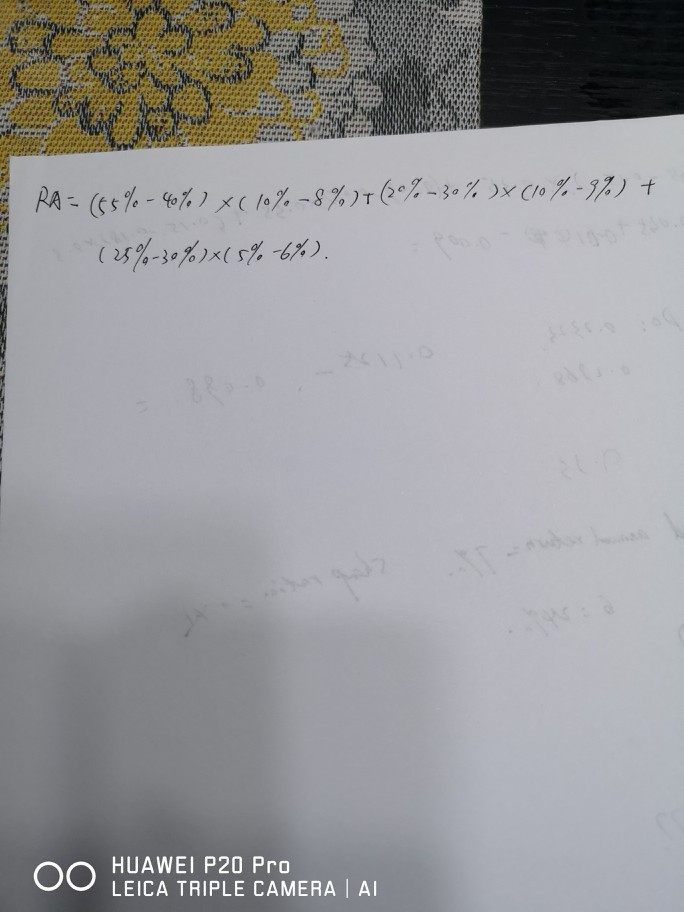 RA = (55% - 40%) × (10% - 8%) + (20% - 30%) × (10% - 9%) +
(25% - 30%) × (5% - 6%).
HUAWEI P20 Pro
LEICA TRIPLE CAMERA | AI